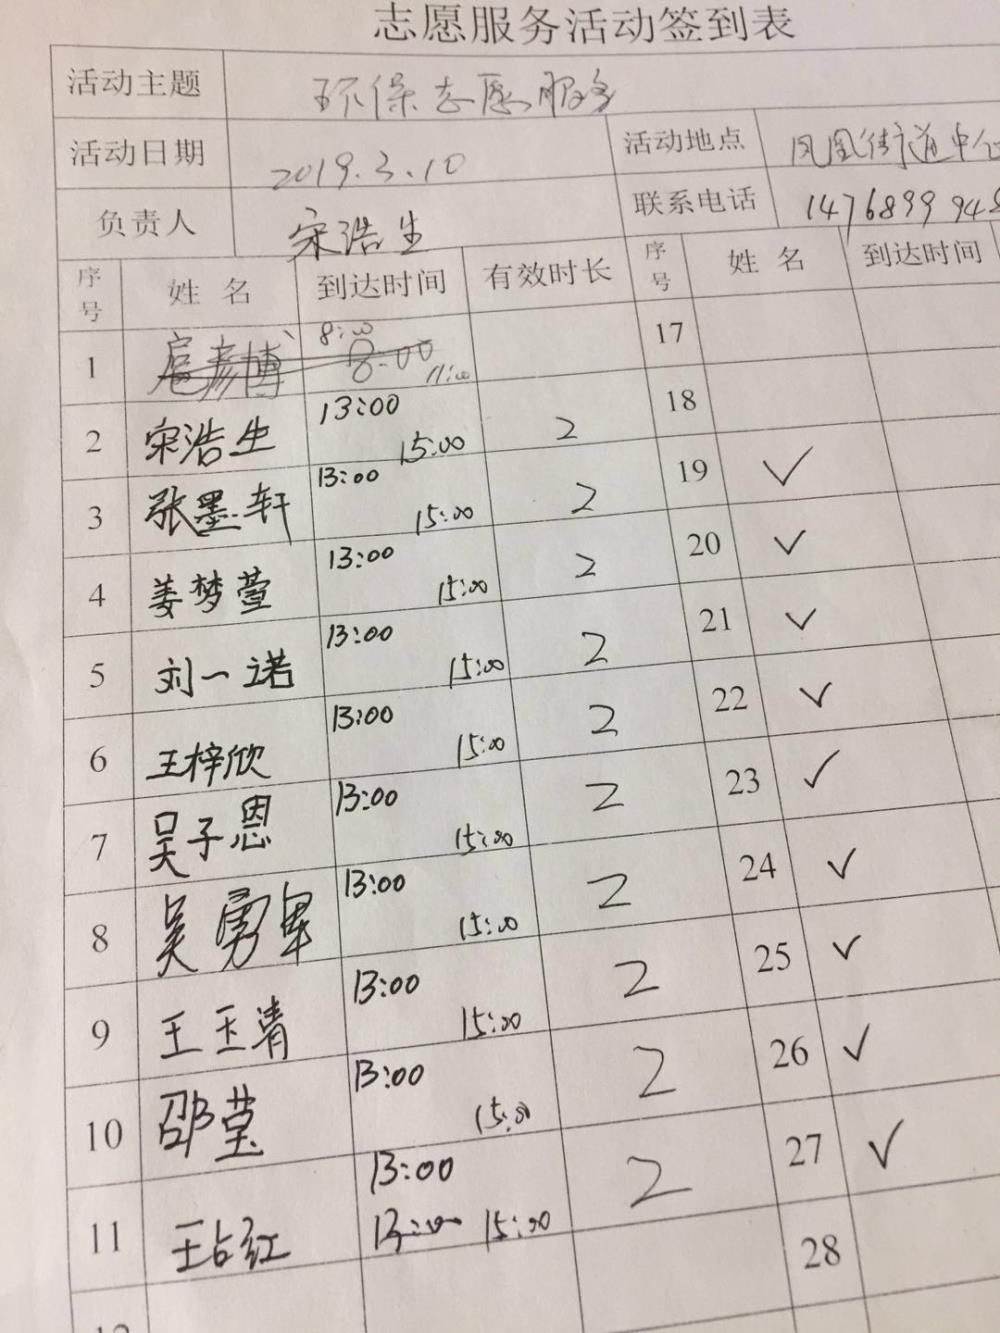 志愿服务活动签到表
活动主题 环保志愿服务
活动日期 2019.3.10 活动地点 凤凰街道中
负责人 宋浩生 联系电话 1476899 948
序号 姓名 到达时间 有效时长 序号 姓名 到达时间
1 彦博 8:00 8:00 11:00 17
2 宋浩生 13:00 15:00 2 18
3 张墨轩 13:00 15:00 2 19 ✓
4 姜梦萱 13:00 15:00 2 20 ✓
5 刘一诺 13:00 15:00 2 21 ✓
6 王梓欣 13:00 15:00 2 22 ✓
7 吴子恩 13:00 15:00 2 23 ✓
8 吴勇 13:00 15:00 2 24 ✓
9 王玉清 13:00 15:00 2 25 ✓
10 邵莹 13:00 15:00 2 26 ✓
11 王占红 13:00 13:00 15:00 2 27 ✓
28